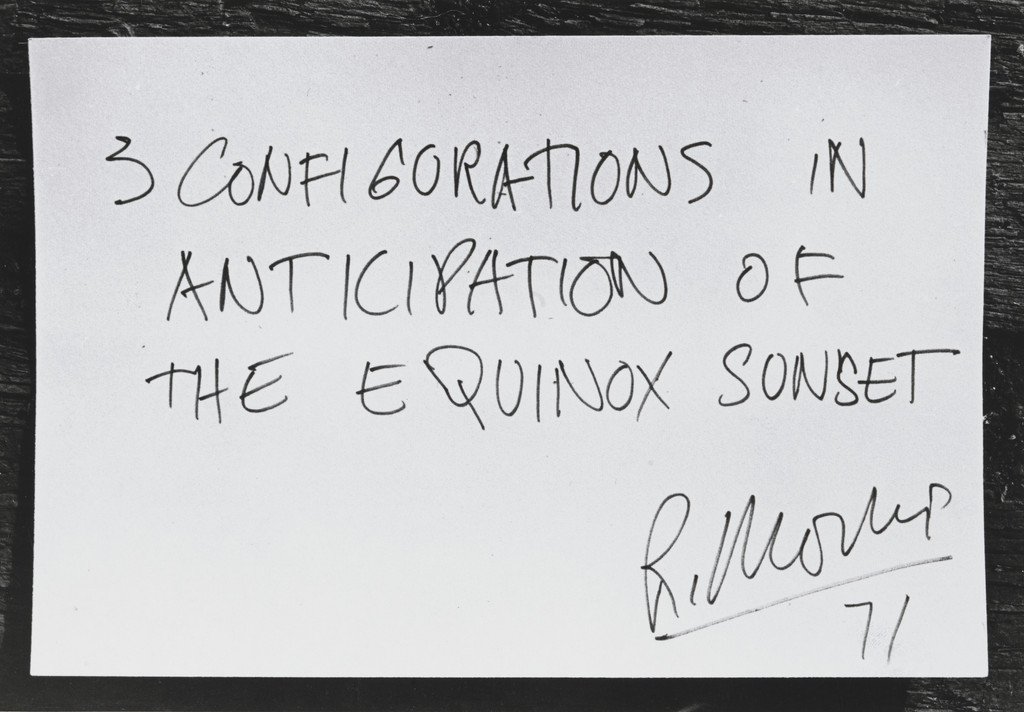 3 CONFIGURATIONS IN
ANTICIPATION OF
THE EQUINOX SUNSET
R. Morris
71